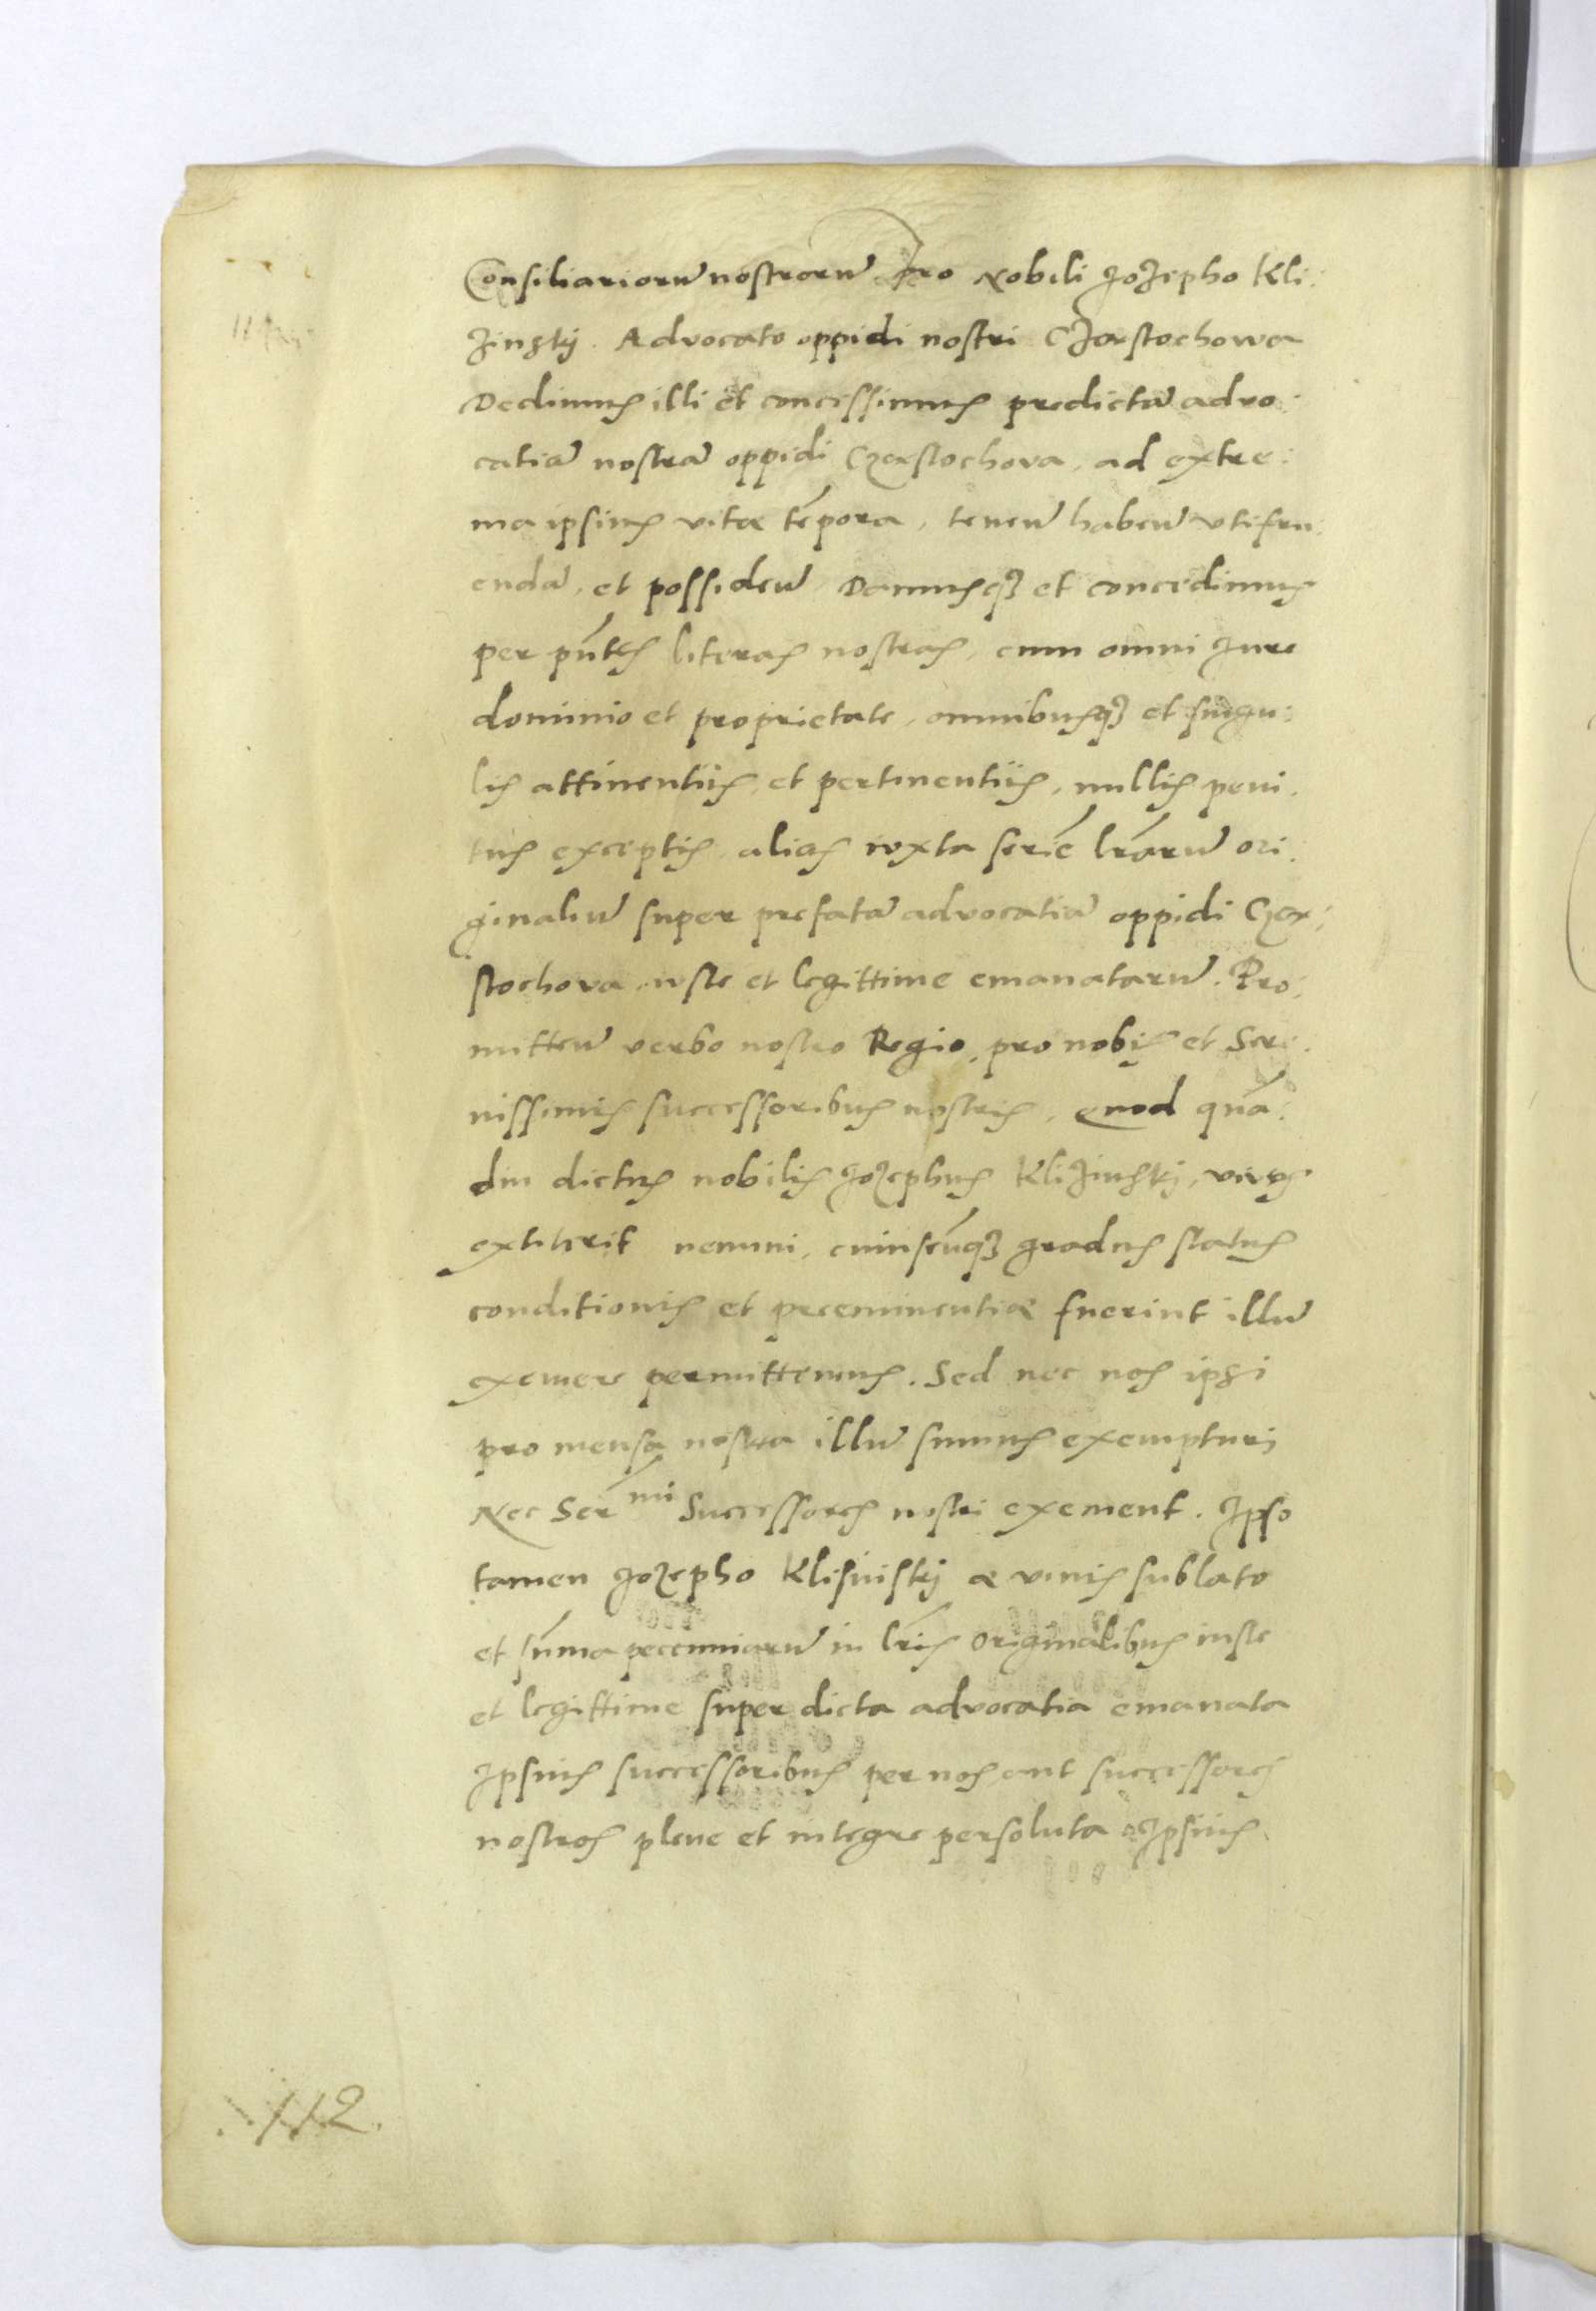 Consiliariorũ nostrorũ pro Nobili Jozepho Kli:
zinsky. Advocato oppidi nostri Czestochowa
Dedimus illi et concessimus predictã advo:
catiã nostrã oppidi Czestochova, ad extre:
ma ipsius vitæ tẽpora, tenen̄ haben̄ vtifru:
endã, et possiden̄ Damusq3 et concedimus
per pn̄tes literas nostras, cum omni Jure
dominio et proprietate, omnibusq3 et singu:
lis attinentiis, et pertinentiis, nullis peni:
tus exceptis, alias iuxta seriẽ lr̃arũ ori:
ginaliũ super prefatã advocatiã oppidi Czę:
stochova iuste et legittime emanatarũ. Pro:
mitten̄ verbo nostro Regio, pro nobis et Sere:
nissimis successoribus nostris, quod quã:
diu dictus nobilis Jozephus Klizinsky, vivus
extiterit nemini, cuiuscũq3 gradus status
conditionis et preeminentiæ fuerint illũ
eximere permittemus. Sed nec nos ipsi
pro mensa nostra illũ sumus exempturi
Nec Ser^mi Successores nostri exement. Ipso
tamen Jozepho Klisinsky e viuis sublato
et sũma peccuniarũ in lr̃is Originalibus iuste
et legittime super dicta advocatia emanata
Ipsius successoribus per nos aut successores
nostros plene et integre persoluta Ipsius
112.